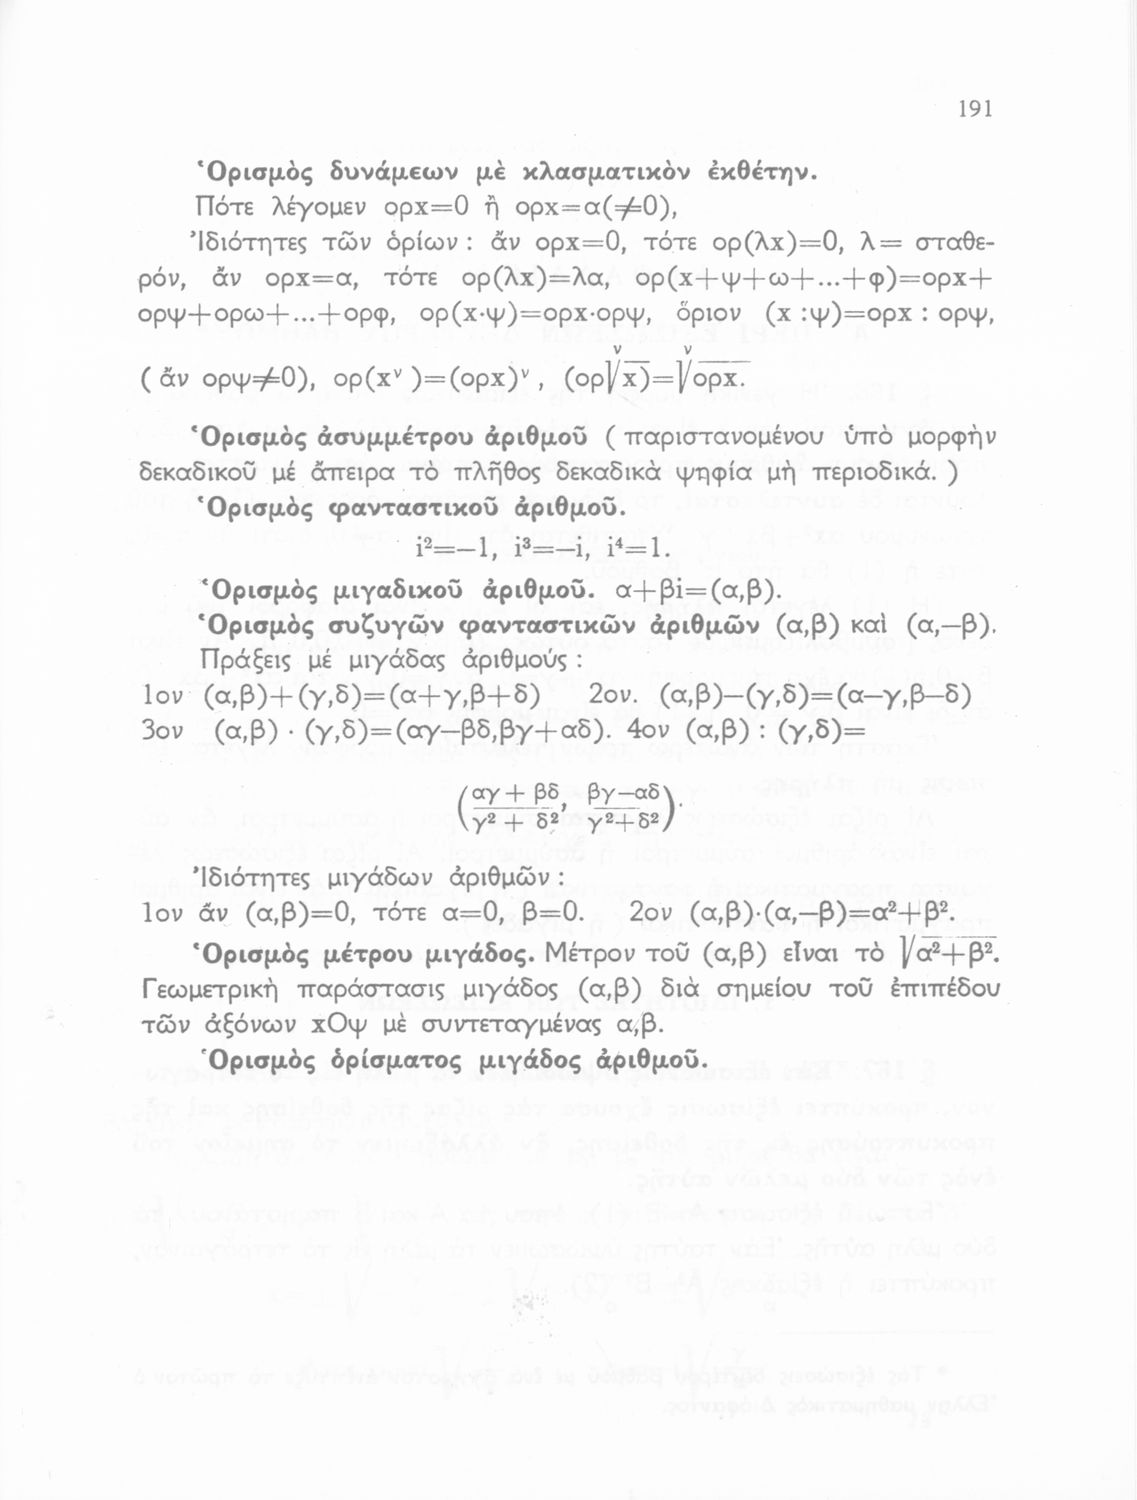 191
Ὁρισμὸς δυνάμεων μὲ κλασματικὸν ἐκθέτην.
Πότε λέγομεν ορχ=0 ἢ ορχ=α(≠0),
Ἰδιότητες τῶν ὁρίων : ἄν ορχ=0, τότε ορ(λχ)=0, λ= σταθε-
ρόν, ἄν ορχ=α, τότε ορ(λχ)=λα, ορ(χ+ψ+ω+...+φ)=ορχ+
ορψ+ορω+...+ορφ, ορ(χ·ψ)=ορχ·ορψ, ὅριον (χ :ψ)=ορχ : ορψ,
( ἄν ορψ≠0), ορ(χᵛ )=(ορχ)ᵛ , (ορᵛ√χ)=ᵛ√ορχ.
Ὁρισμὸς ἀσυμμέτρου ἀριθμοῦ ( παριστανομένου ὑπὸ μορφὴν
δεκαδικοῦ μέ ἄπειρα τὸ πλῆθος δεκαδικὰ ψηφία μὴ περιοδικά. )
Ὁρισμὸς φανταστικοῦ ἀριθμοῦ.
i²=—1, i³=—i, i⁴=1.
Ὁρισμὸς μιγαδικοῦ ἀριθμοῦ. α+βi=(α,β).
Ὁρισμὸς συζυγῶν φανταστικῶν ἀριθμῶν (α,β) καὶ (α,—β).
Πράξεις μέ μιγάδας ἀριθμούς :
1ον (α,β)+(γ,δ)=(α+γ,β+δ) 2ον. (α,β)—(γ,δ)=(α—γ,β—δ)
3ον (α,β) · (γ,δ)=(αγ—βδ,βγ+αδ). 4ον (α,β) : (γ,δ)=
(αγ + βδ/γ² + δ², βγ—αδ/γ²+δ²).
Ἰδιότητες μιγάδων ἀριθμῶν :
1ον ἄν (α,β)=0, τότε α=0, β=0. 2ον (α,β)·(α,—β)=α²+β².
Ὁρισμὸς μέτρου μιγάδος. Μέτρον τοῦ (α,β) εἶναι τὸ √α²+β².
Γεωμετρικὴ παράστασις μιγάδος (α,β) διὰ σημείου τοῦ ἐπιπέδου
τῶν ἀξόνων χΟψ μὲ συντεταγμένας α,β.
Ὁρισμὸς ὁρίσματος μιγάδος ἀριθμοῦ.